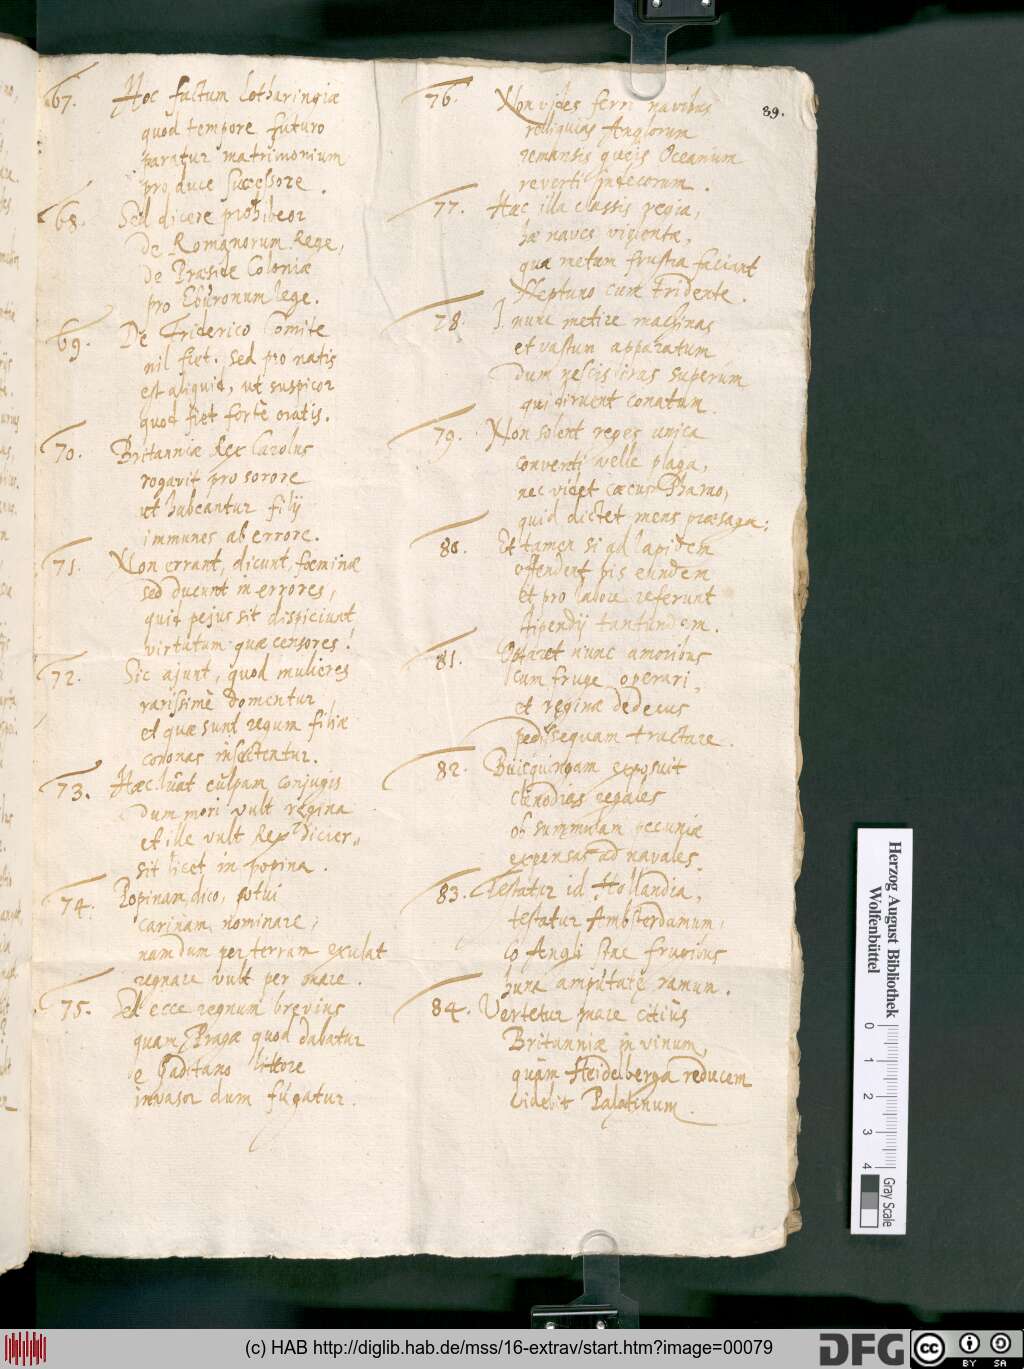 89.
67. Hoc factum Lotharingiæ
quod tempore futuro
paratur matrimonium
pro duce successore.
68. Sed dicere prohibeor
De Romanorum Rege,
De Præside Coloniæ
pro Eburonum lege.
69. De Friderico Comite
nil fiet. sed pro natis
est aliquid, ut suspicor
quod fiet fortè gratis.
70. Britanniæ Rex Carolus
rogavit pro sorore
ut habeantur filij
immunes ab errore.
71. Non errant, dicunt, fœminæ
sed ducunt in errores,
quid pejus sit dispiciunt
virtutum quæ censores!
72. Sic ajunt, quod mulieres
rarissimè domentur
et quæ sunt regum filiæ
coronas insectentur.
73. Hæc luat culpam conjugis
dum mori vult regina
et ille vult Rex dicier,,
sit licet in popina.
74. Popinam, dico, potui
carinam nominare,
nam dum per terram exulat
regnare vult per mare.
75. Sed ecce regnum brevius
quam Pragæ quod dabatur
e Gaditano littore
invasor dum fugatur.
76. Non vides ferri navibus
relliquias Anglorum
remansis queis Oceanum
reverti indecorum.
77. Hæc illa classis regia,
hæ naves
qua metum frustra faciant
Neptuno cum tridente.
78. I nunc metire machinas
et vastum apparatum
dum nescis iras superum
qui diruent conatum.
79. Non solent reges unica
converti velle plaga,
nec videt cæcus Pharao,
quid dictet mens præsaga;
80. Et tamen si ad lapidem
offendent bis eundem
et pro labore referunt
stipendij tantundem.
81. Oporet nunc amoribus
cum fruge operari,
et reginæ dedecus
pedissequam tractare.
82. exposuit
clenodias regales
ob summulam pecuniæ
expensas ad navales.
83. Testatur id Hollandia,
testatur Ambsterdamum,
Co Angli stac
hunc ramum.
84. Vertetur mare citius
Britanniæ in vinum,
quàm Heidelberga reducem
videbit Palatinum.
Herzog August Bibliothek
Wolfenbüttel
0 1 2 3 4
Gray Scale
(c) HAB http://diglib.hab.de/mss/16-extrav/start.htm?image=00079
DFG
cc
BY SA